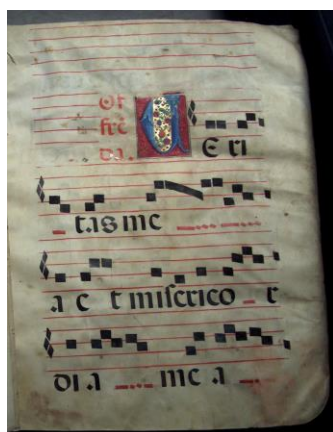 Of
frē
da.
VE ri
tas me
a e t miserico r
di a me a